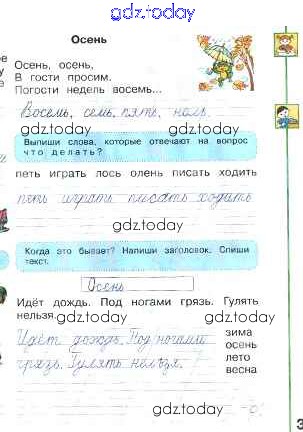 gdz.today
Осень
Осень, осень,
В гости просим.
Погости недель восемь...
gdz.today
Восемь, семь, пять, ноль.
gdz.today
Выпиши слова, которые отвечают на вопрос
что делать?
петь играть лось олень писать ходить
петь играть писать ходить
gdz.today
Когда это бывает? Напиши заголовок. Спиши
текст.
Осень
Идёт дождь. Под ногами грязь. Гулять
нельзя. gdz.today gdz.today
Идёт дождь. Под ногами зима
осень
грязь. Гулять нельзя. лето
весна
gdz.today
3